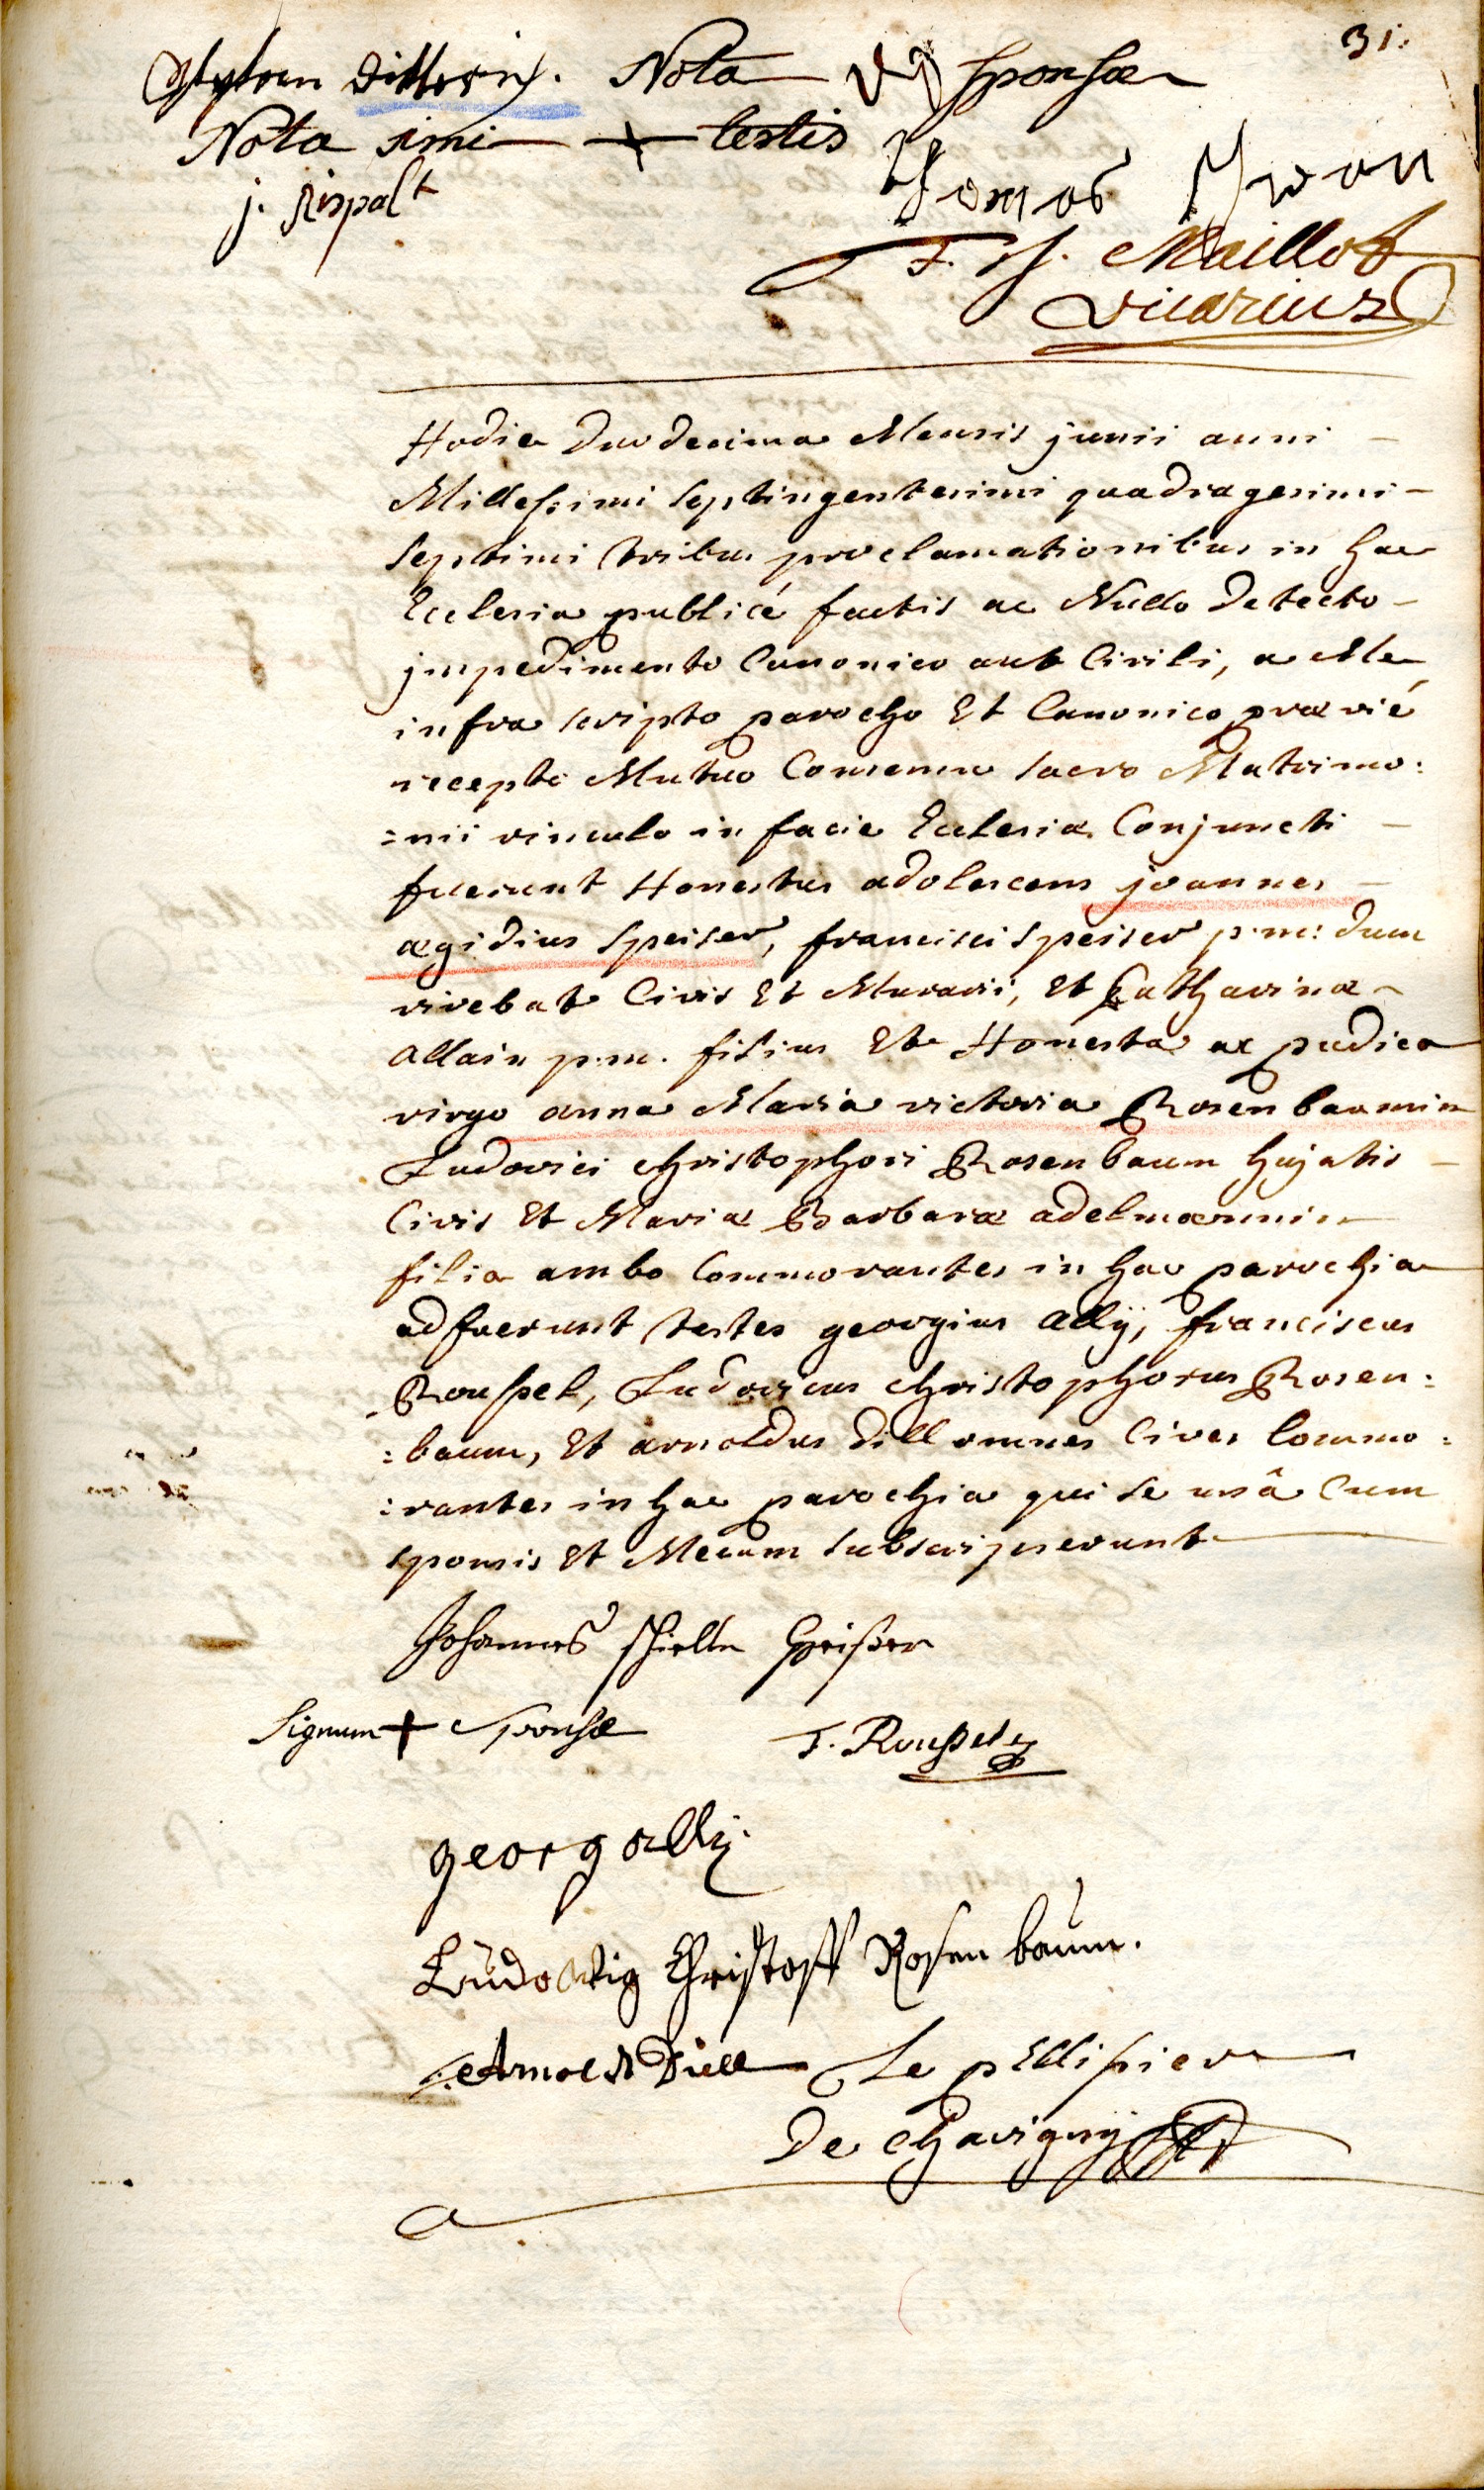 31.
Nota sponsæ
Nota imi + testis
Thomas Yvon
j. Rispalt
F. H. Maillot
vicarius
Hodie duodecima Mensis junii anni
Millessimi septingentesimi quadragesimi
septimi tribus proclamationibus in hac
Ecclesia publicé factis ac Nullo detecto
jmpedimento Canonico aut Civili, a Me
infra scripto parocho Et Canonico prævié
recepto Mutuo Consensu sacro Matrimo:
=nii vinculo in facie Ecclesiæ Conjuncti
fuerunt Honestus adolescens joannes
ægidius Speiser, francisci Speiser p.m: dum
vivebat Civis Et Murarii, Et Catharinæ
Allain p.m. filius Et Honesta ac pudica
virgo anna Maria victoria Rosenbaumin
Ludovici christophori Rosenbaum hujatis
Civis Et Mariæ Barbaræ adelmannin
filia ambo Commorantes in hac parochia
adfuerunt testes georgius Ally, franciscus
Roussel, Ludovicus christophorus Rosen:
=baum, Et arnoldus Dill omnes Cives Commo:
:rantes in hac parochia qui se unâ Cum
sponsis Et Mecum subscripserunt
Johannes Speißer
Signum + Sponsæ
F. Roussel
georg ally.
Ludowig Christoff Rosenbaum.
Arnold Dill
Le pEllissier
De chavigny